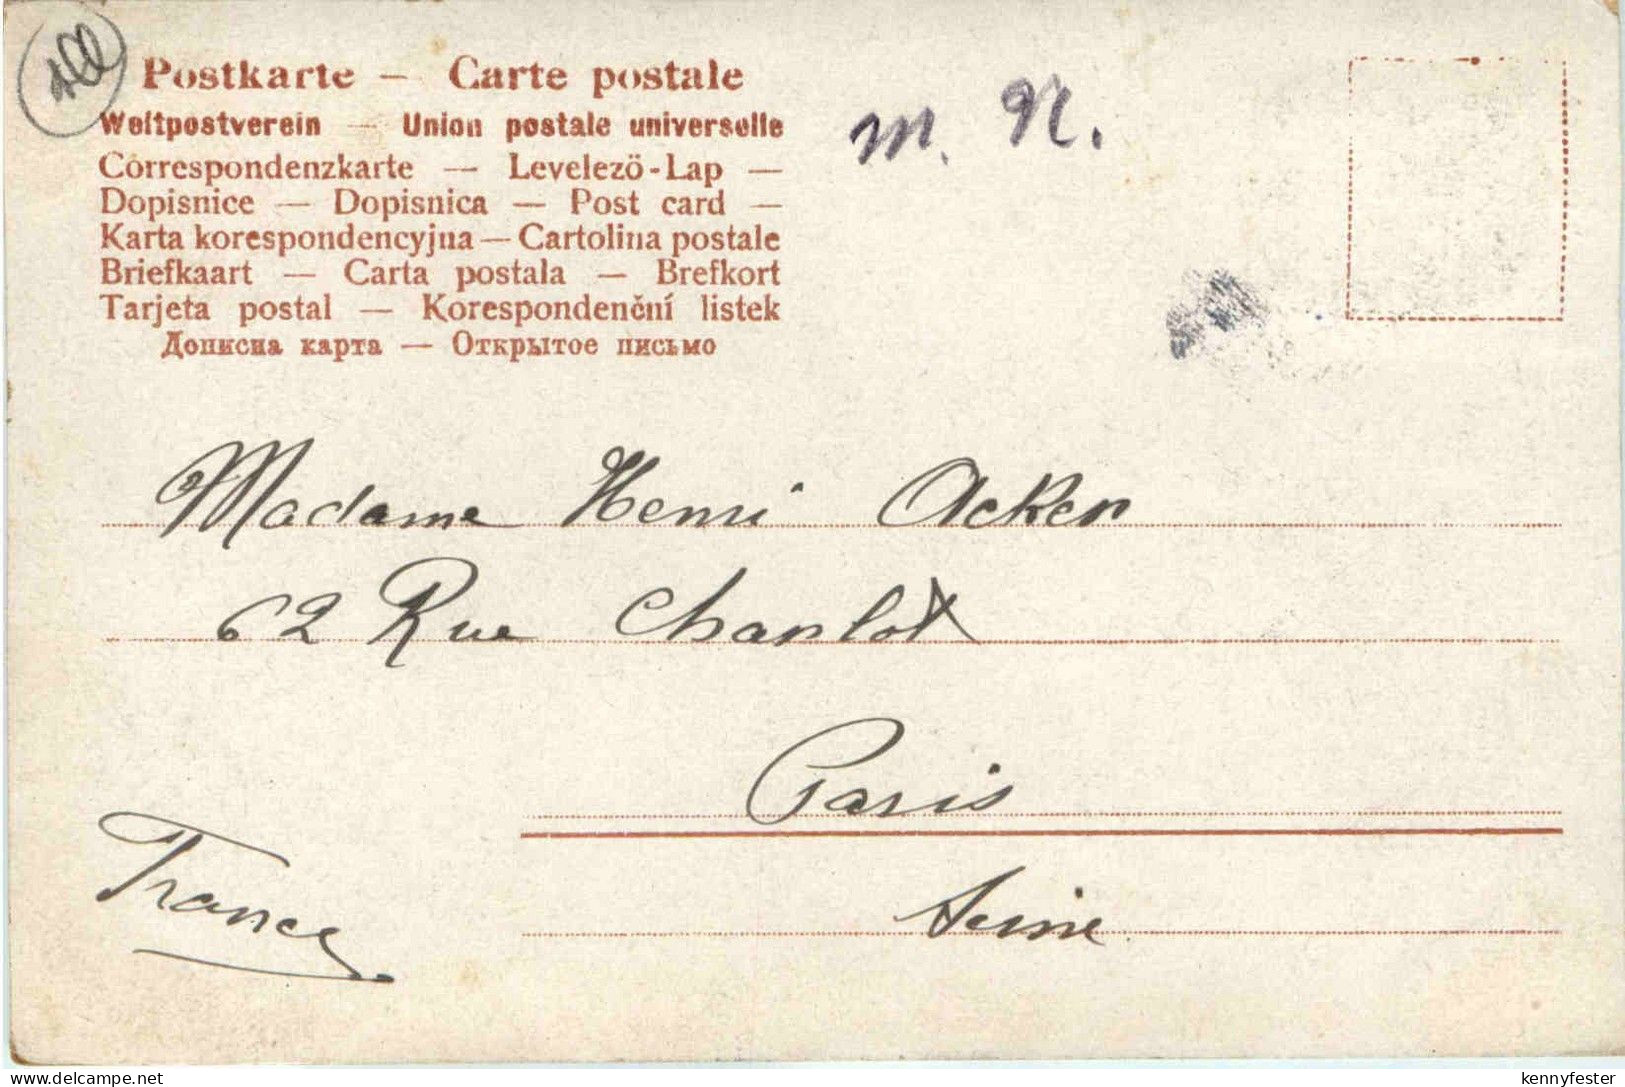 Postkarte – Carte postale
Weltpostverein – Union postale universelle
Correspondenzkarte — Levelezö-Lap —
Dopisnice — Dopisnica — Post card —
Karta korespondencyjna — Cartolina postale
Briefkaart — Carta postala — Brefkort
Tarjeta postal — Korespondenční listek
Дописна карта — Открытое письмо
m. N.
Madame Henri Acker
62 Rue Charlot
Paris
Seine
France
delcampe.net
kennyfester